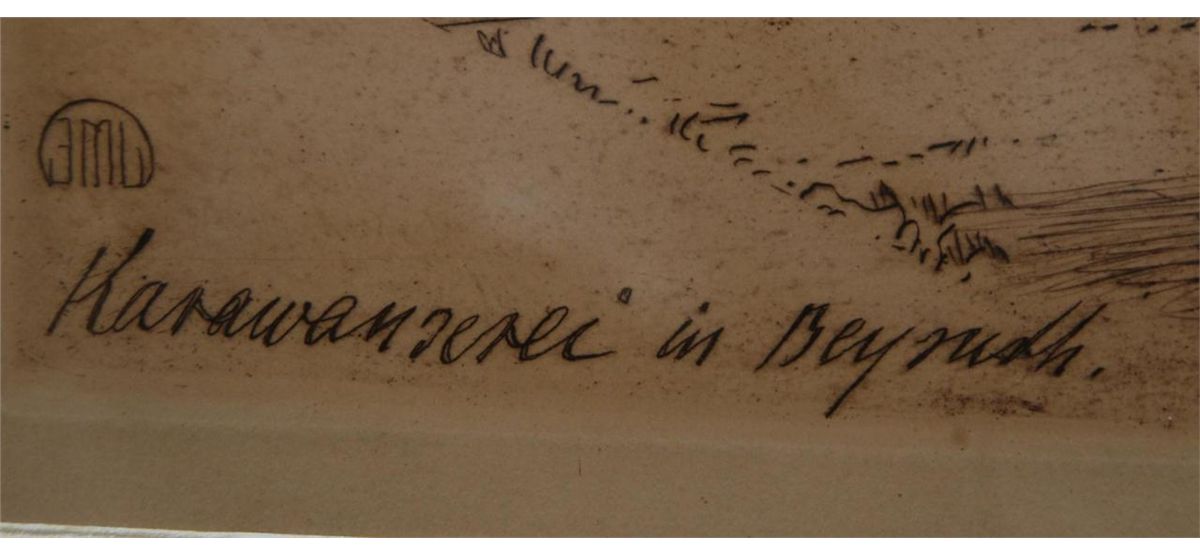 EML
Karawanserei in Beyruth.